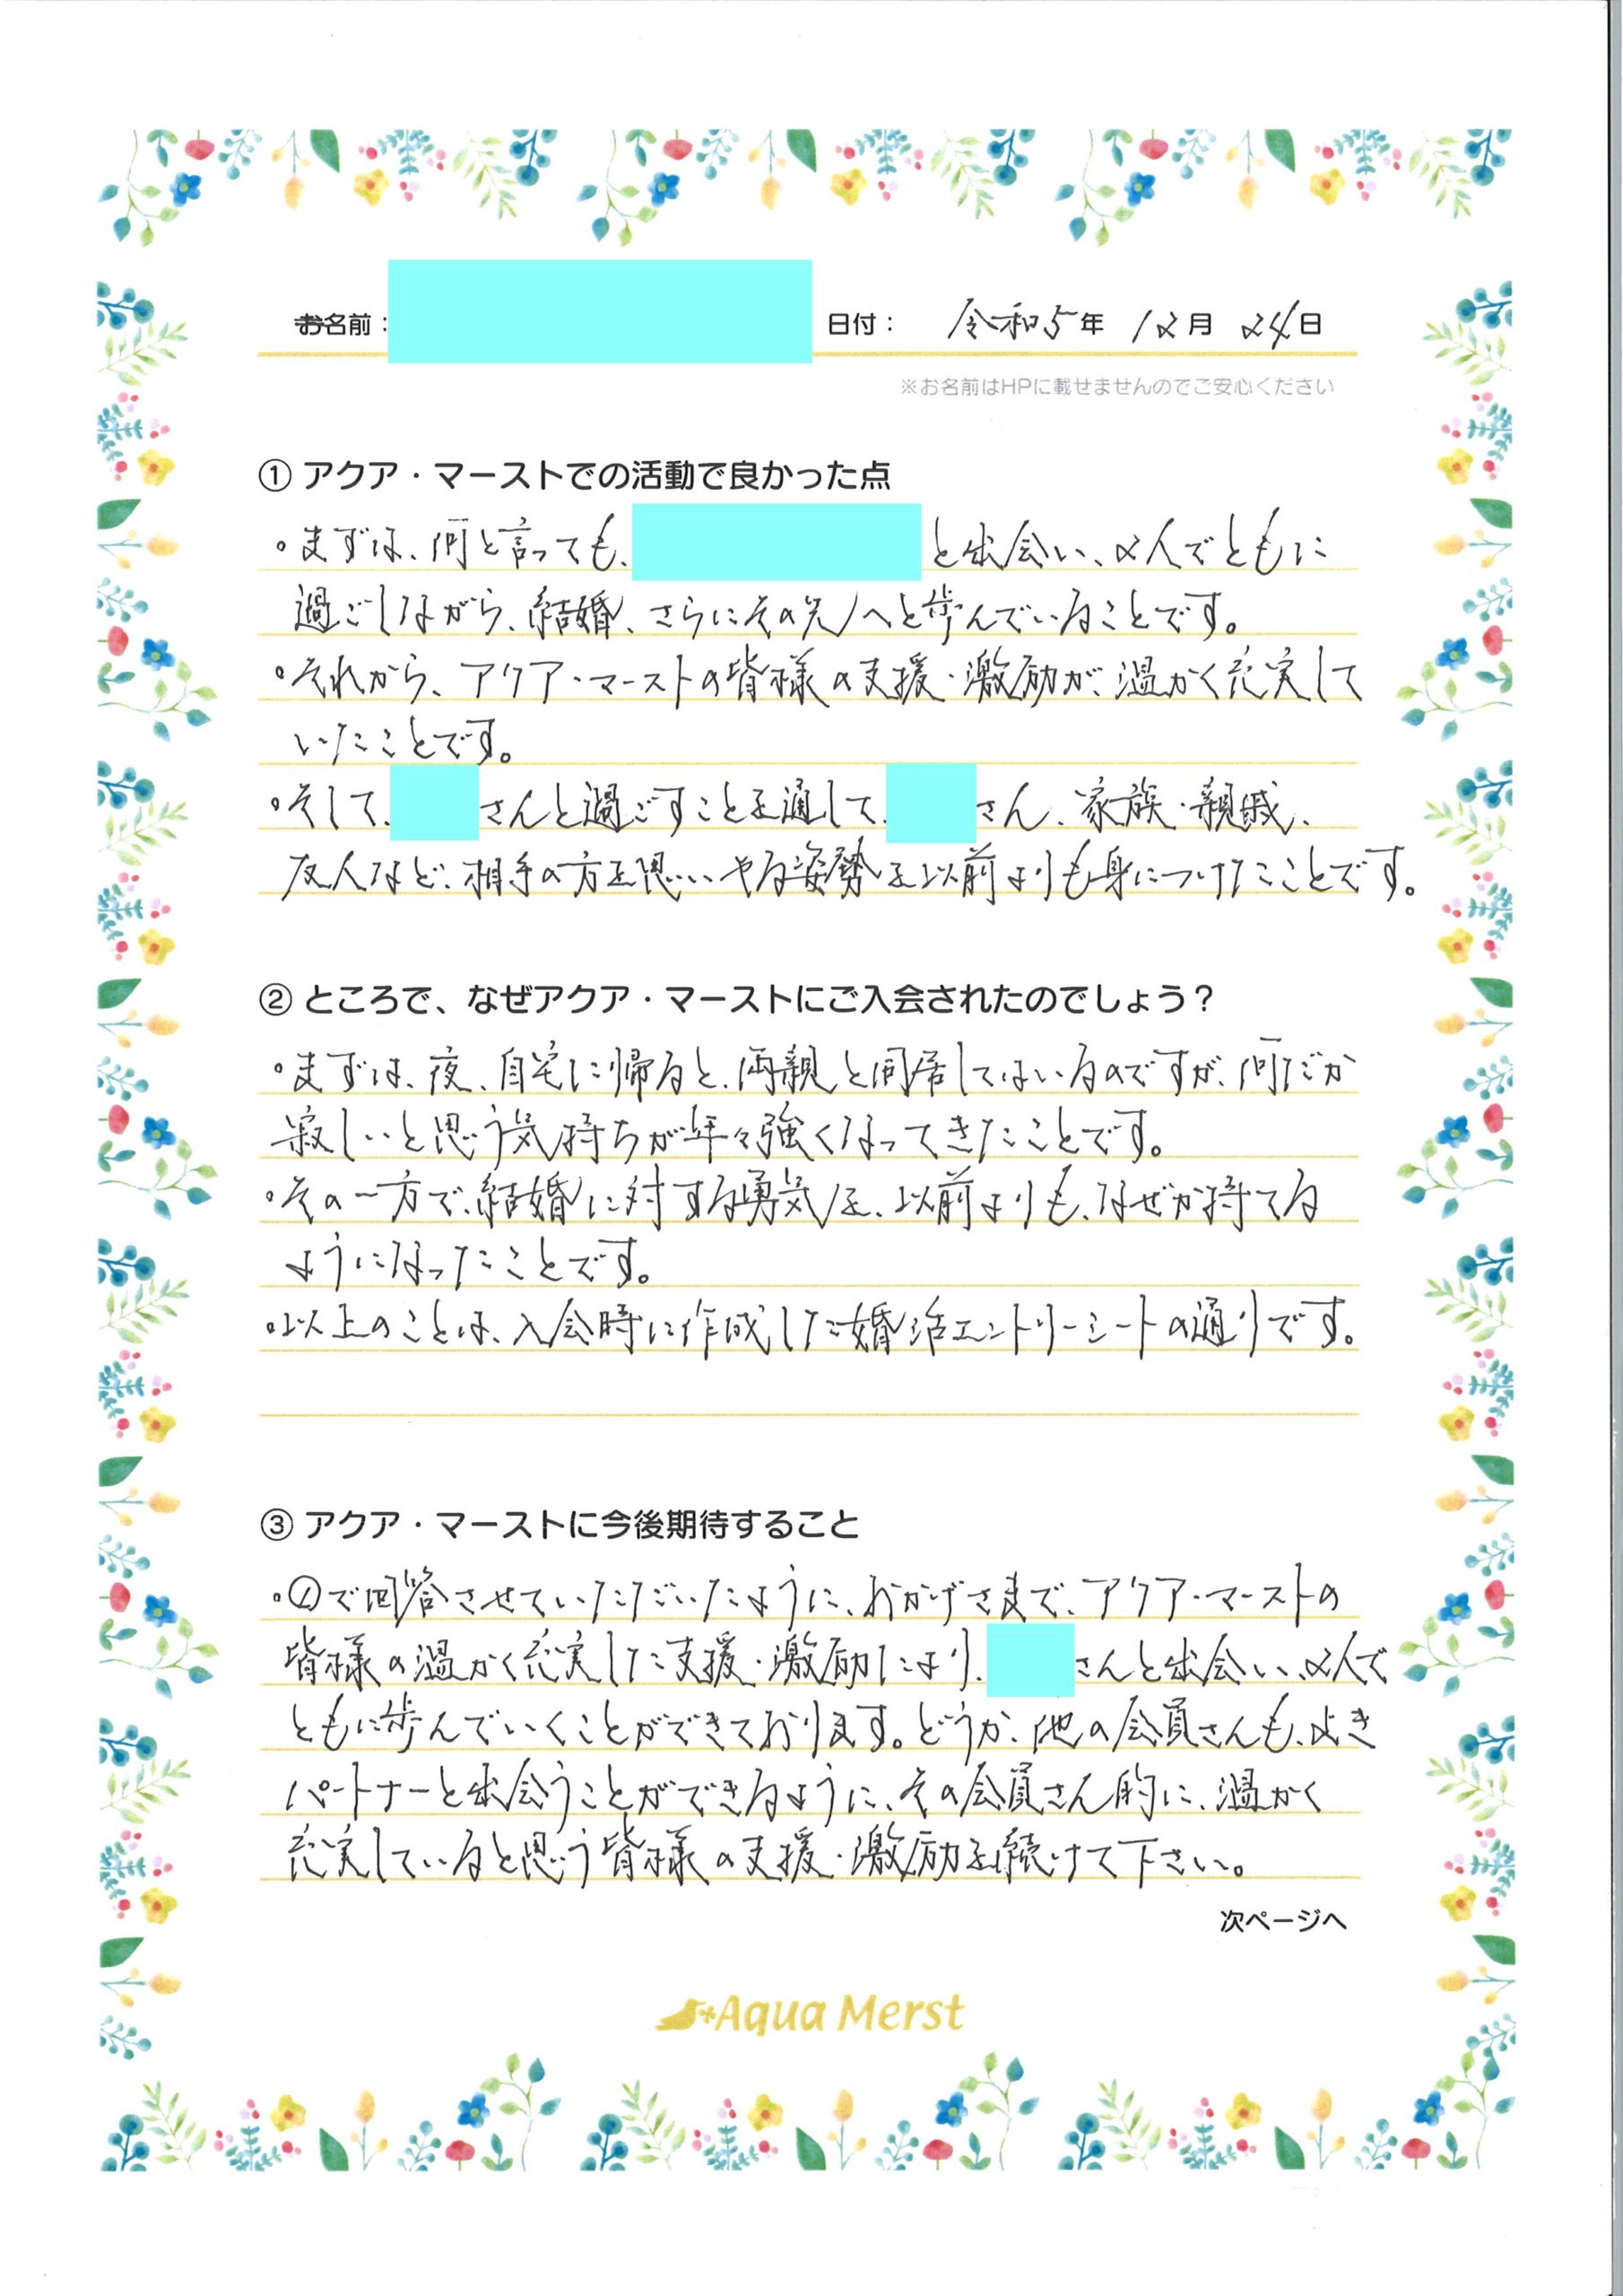 お名前： 日付： 令和5年 12月 24日
※お名前はHPに載せませんのでご安心ください
① アクア・マーストでの活動で良かった点
・まずは、何と言っても、 と出会い、2人でともに
過ごしながら、結婚、さらにその先へと歩んでいることです。
・それから、アクア・マーストの皆様の支援・激励が、温かく充実して
いたことです。
・そして、 さんと過ごすことを通して、 さん、家族・親戚、
友人など、相手の方を思いやる姿勢を以前よりも身につけたことです。
② ところで、なぜアクア・マーストにご入会されたのでしょう？
・まずは、夜、自宅に帰ると、両親と同居してはいるのですが、何だか
寂しいと思う気持ちが年々強くなってきたことです。
・その一方で、結婚に対する勇気を、以前よりも、なぜか持てる
ようになったことです。
・以上のことは、入会時に作成した婚活エントリーシートの通りです。
③ アクア・マーストに今後期待すること
・①で回答させていただいたように、おかげさまで、アクア・マーストの
皆様の温かく充実した支援・激励により、 さんと出会い、2人で
ともに歩んでいくことができております。どうか、他の会員さんも、よき
パートナーと出会うことができるように、その会員さん的に、温かく
充実していると思う皆様の支援・激励を続けて下さい。
次ページへ
Aqua Merst